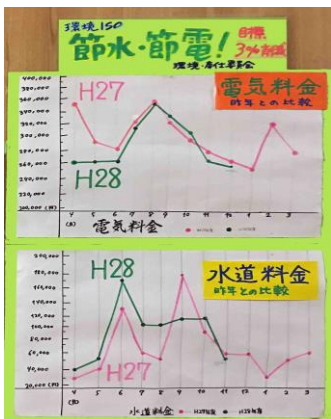 環境ISO
節水・節電!
目標
3%削減
電気料金
昨年との比較
H27
H28
400,000
380,000
360,000
340,000
320,000
300,000
280,000
260,000
240,000
220,000
200,000 (円)
4 5 6 7 8 9 10 11 12 1 2 3
(月)
電気料金
水道料金
昨年との比較
H28
H27
200,000
180,000
160,000
140,000
120,000
100,000
80,000
60,000
40,000
20,000 (円)
4 5 6 7 8 9 10 11 12 1 2 3
(月)
水道料金